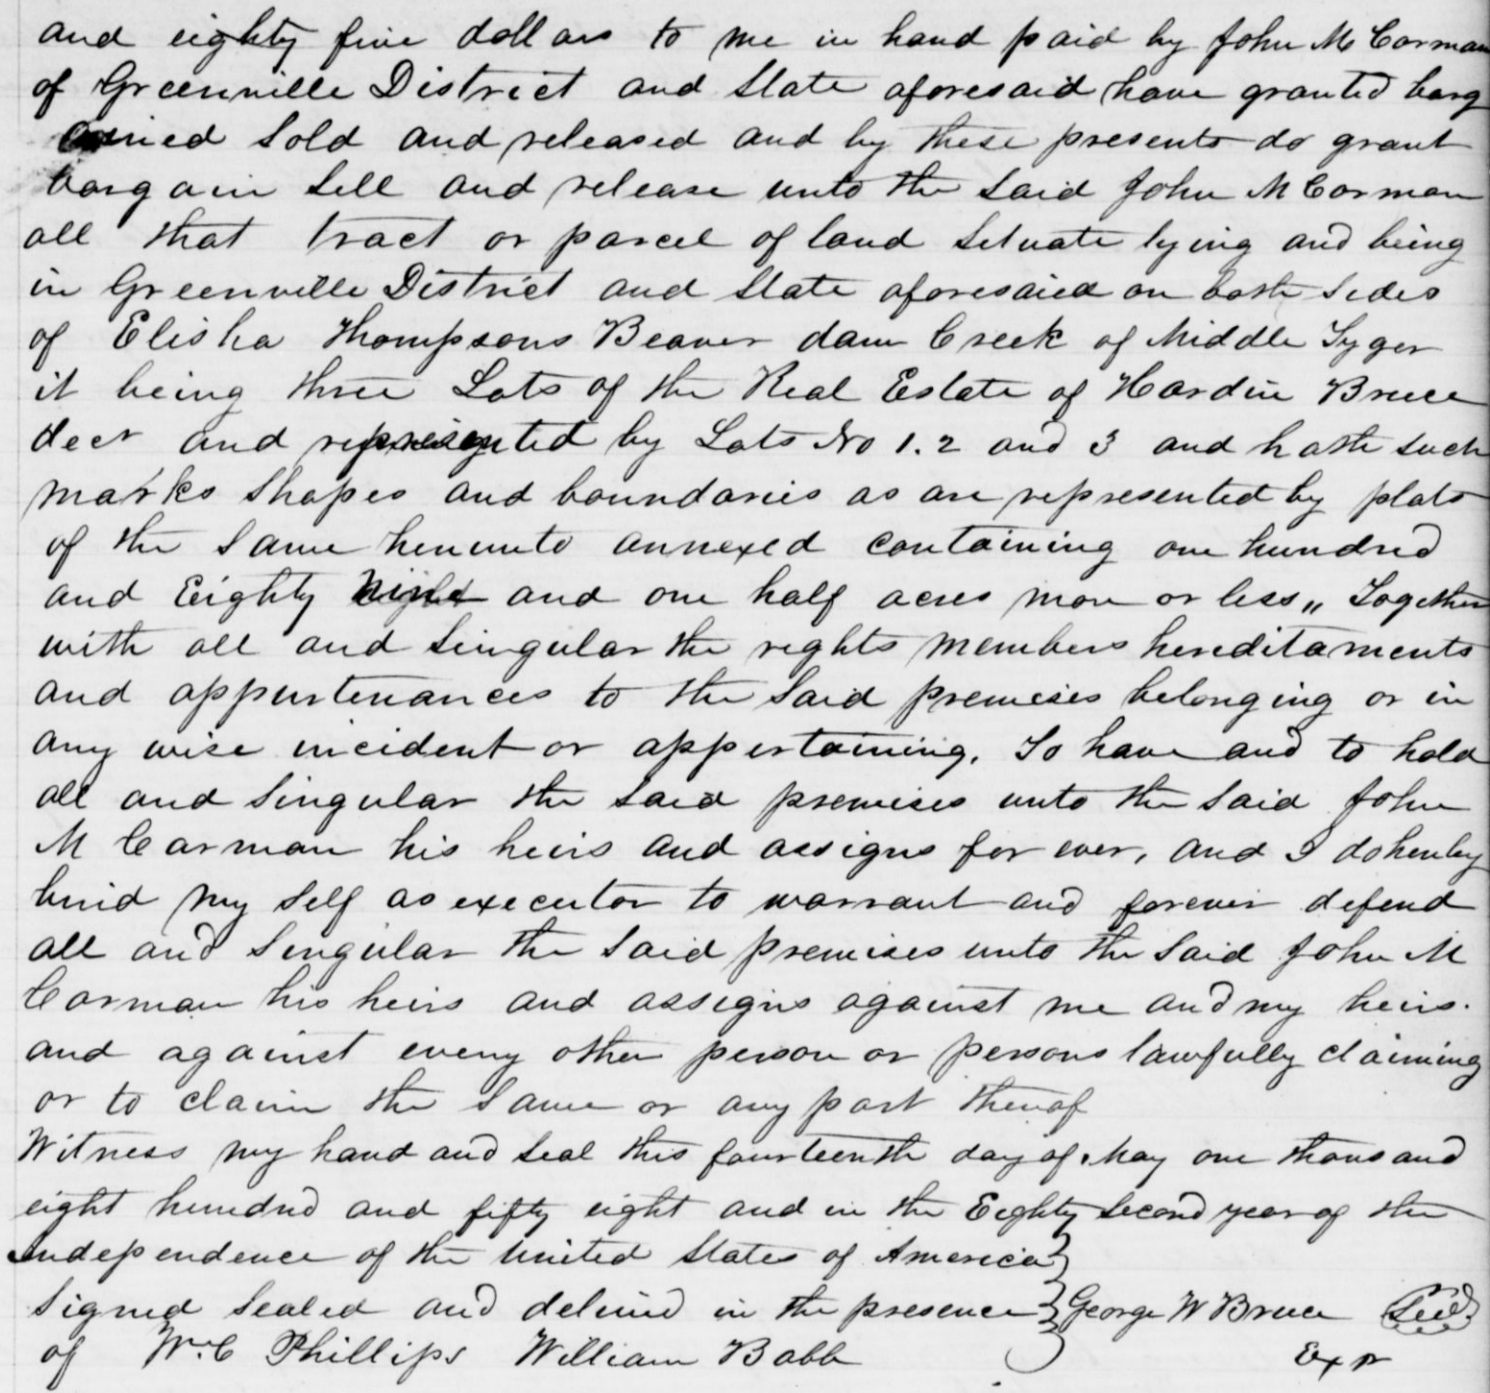 and eighty five dollars to me in hand paid by John M Corman
of Greenville District and State aforesaid have granted barg
ained sold and released and by these presents do grant
bargain sell and release unto the said John M Corman
all that tract or parcel of land situate lying and being
in Greenville District and State aforesaid on both sides
of Elisha Thompsons Beaver dam Creek of Middle Tyger
it being three Lots of the Real Estate of Hardin Bruce
decr and represented by Lots No 1. 2 and 3 and hath such
marks shapes and boundaries as are represented by plats
of the same hereunto annexed containing one hundred
and Eighty and one half acres more or less,, Together
with all and singular the rights members hereditaments
and appurtenances to the said premises belonging or in
any wise incident or appertaining. To have and to hold
all and singular the said premises unto the said John
M Carman his heirs and assigns for ever, and I do hereby
bind my self as executor to warrant and forever defend
all and singular the said premises unto the said John M
Corman his heirs and assigns against me and my heirs.
and against every other person or persons lawfully claiming
or to claim the same or any part thereof
Witness my hand and seal this fourteenth day of May one thousand
eight hundred and fifty eight and in the Eighty second year of the
independence of the United States of America
Signed sealed and delivered in the presence George W Bruce Seal
of Wm C Phillips William Babb Exr